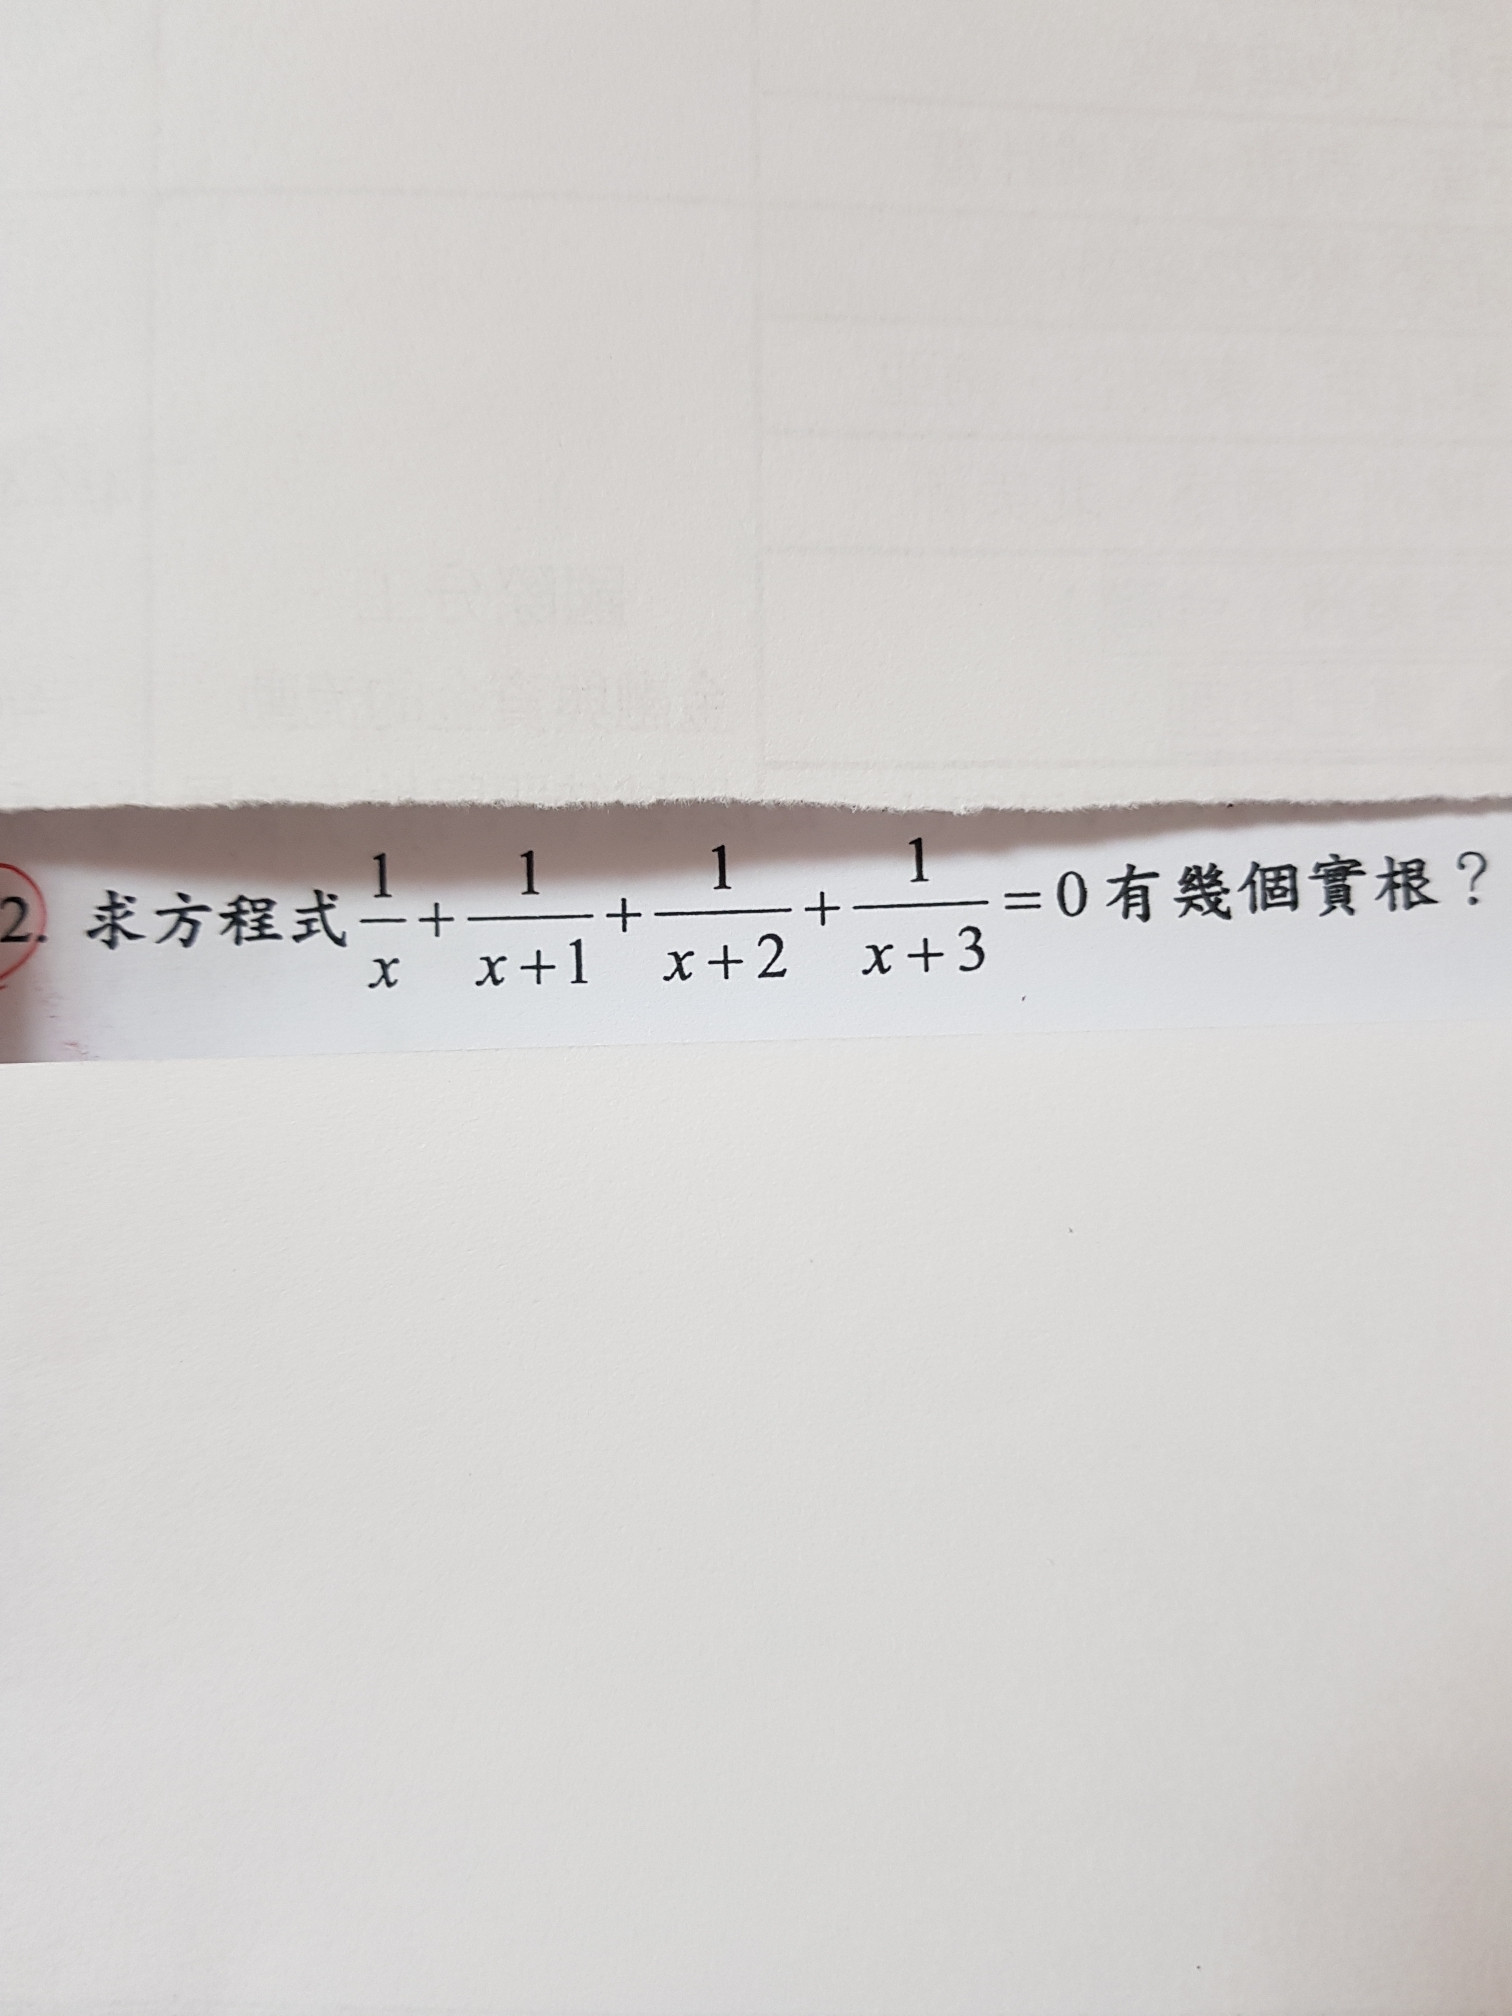 2. 求方程式 1/x + 1/(x+1) + 1/(x+2) + 1/(x+3) = 0 有幾個實根？